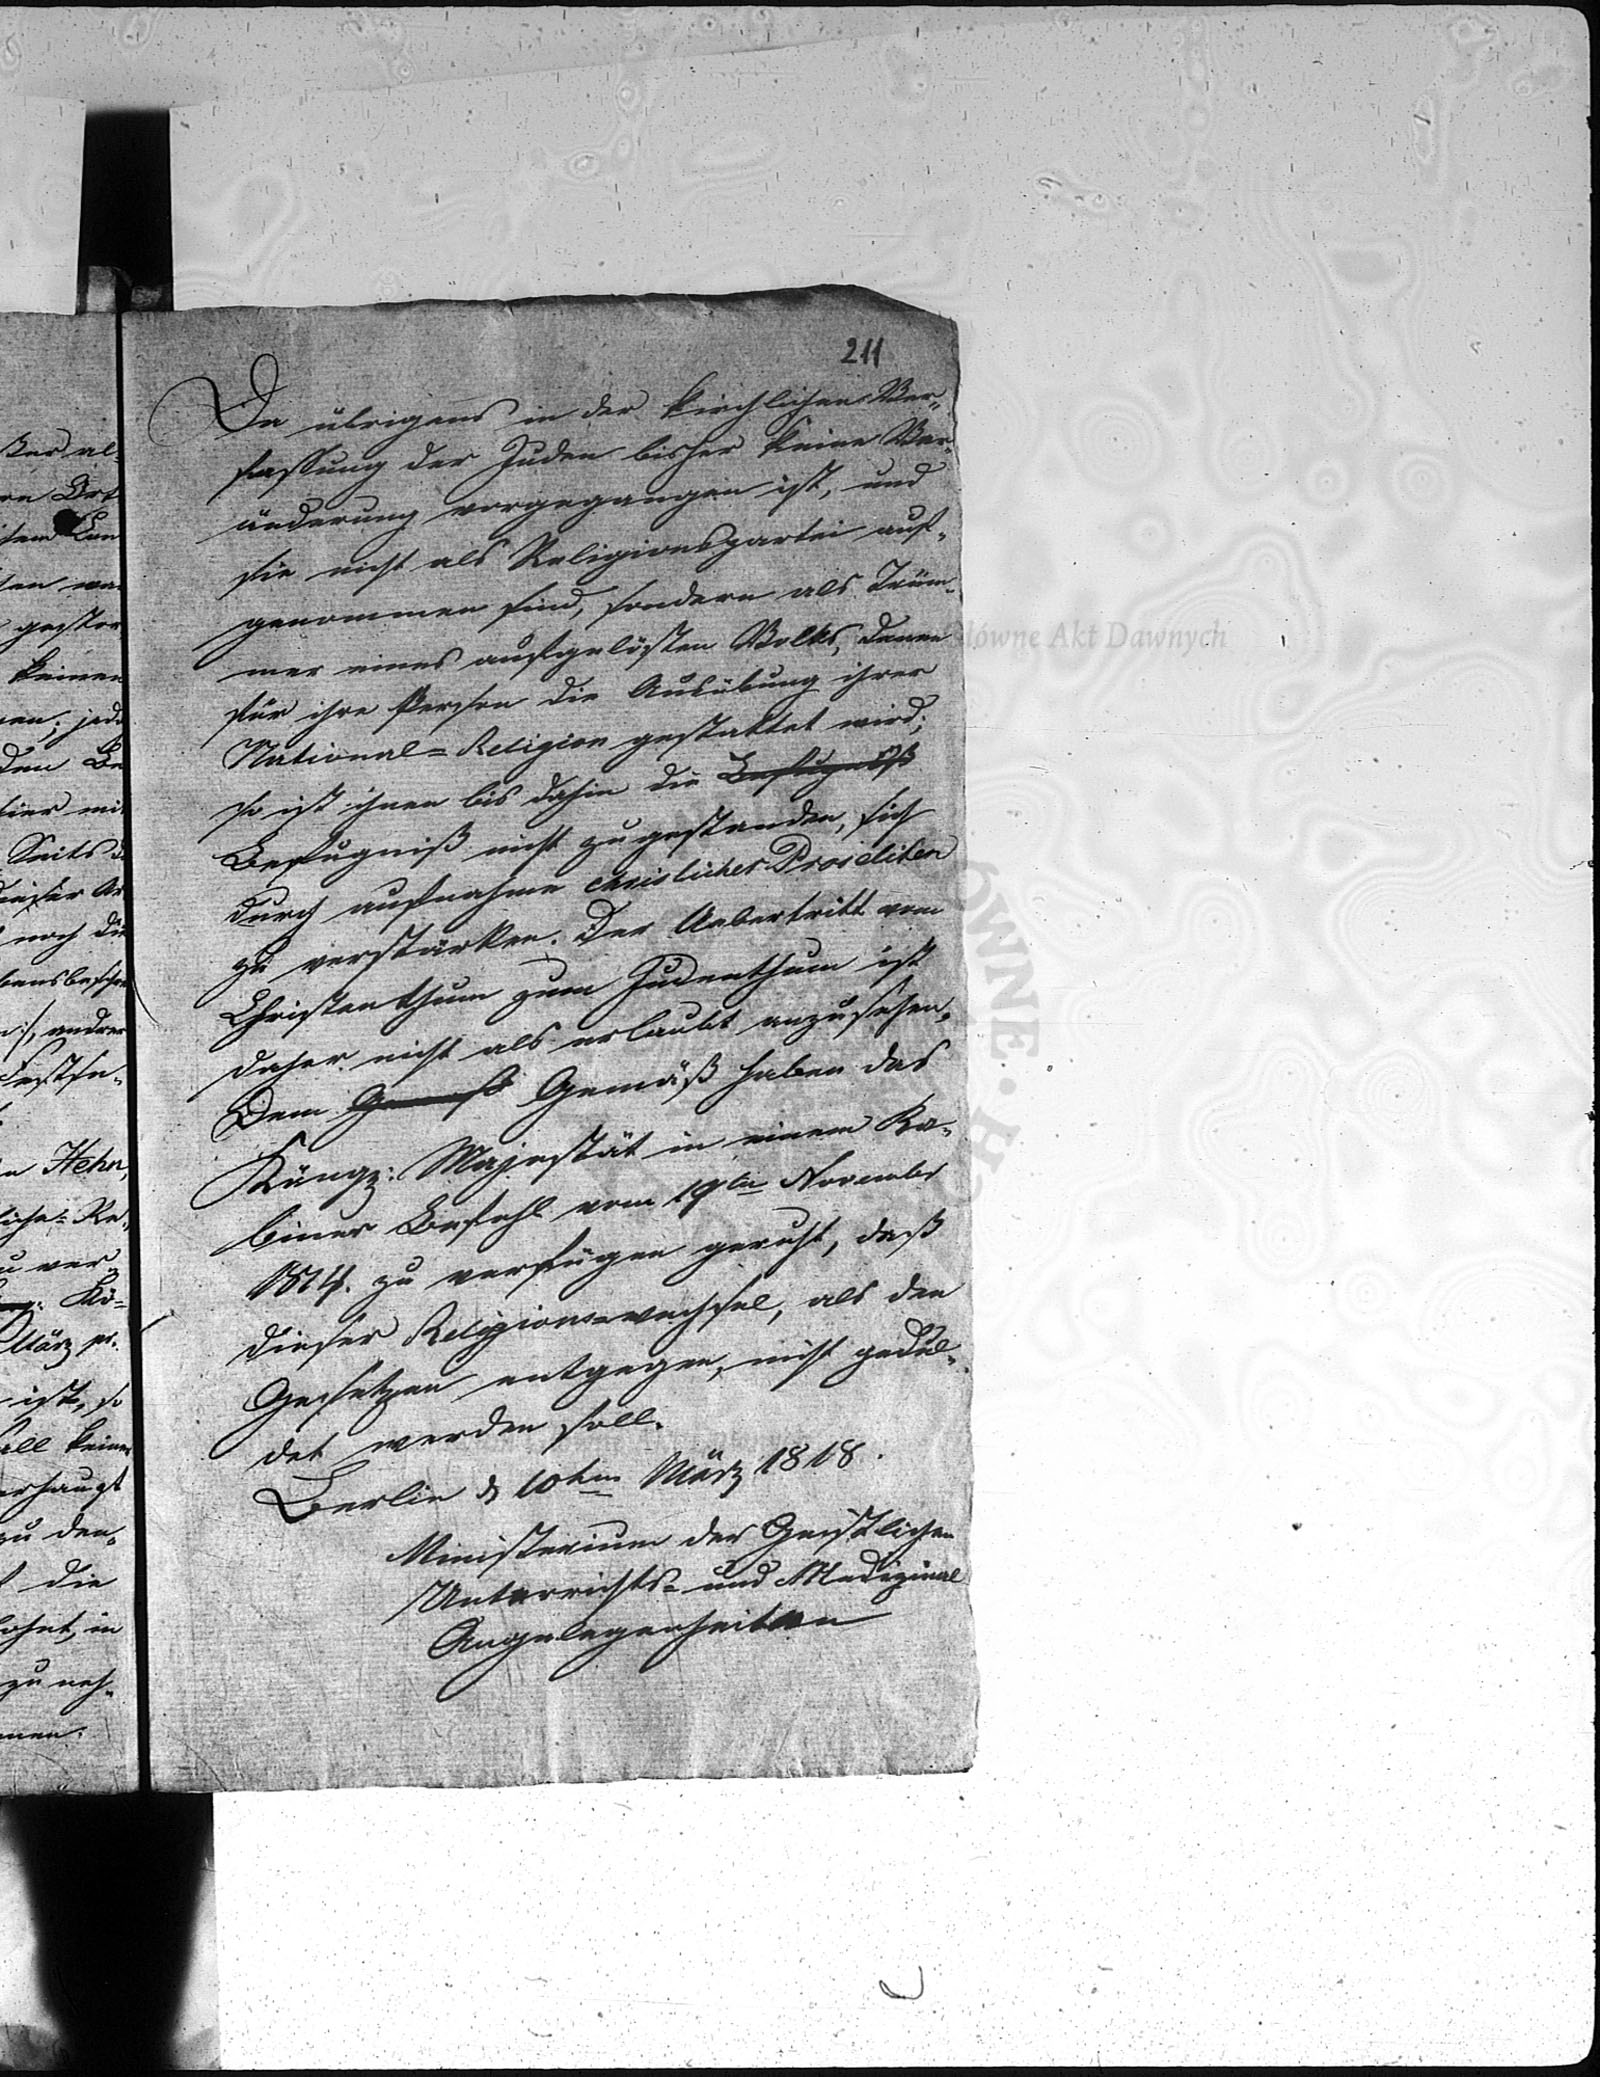 211
ßer al-
Ort
gestor
keinen
jede
den Be
Seits
dieser
noch die
andrer
Festse-
Hehn,
liche= Re-
zu ver-
März pr.
ist, so
all keine
erhaupt
zu den-
die
in
zu neh-
men.
Da übrigens in der kirchlichen Ver-
fassung der Juden bisher keine Ver-
änderung vorgegangen ist, und
sie nicht als Religionspartei auf-
genommen sind, sondern als Trüm-
mer eines aufgelösten Volks, denen
für ihre Person die Ausübung ihrer
National=Religion gestattet wird;
so ist ihnen bis dahin die Befugniß
Befugniß nicht zugestanden, sich
durch aufnahme chrislicher Proseliten
zu verstärken. Der Uebertritt vom
Christenthum zum Judenthum ist
daher nicht als erlaubt anzusehen.
Dem Gemäß haben das
Königz: Majestät in einem Ka-
binets Befehl vom 19ten November
1814. zu verfügen geruht, daß
dieser Religionswechsel, als den
Gesetzen entgegen, nicht gedul-
det werden soll.
Berlin d 10ten März 1818.
Ministerium der Geistlichen
Unterrichts= und Medizinal
Angelegenheiten
łówne Akt Dawnych
ÓWNE · H